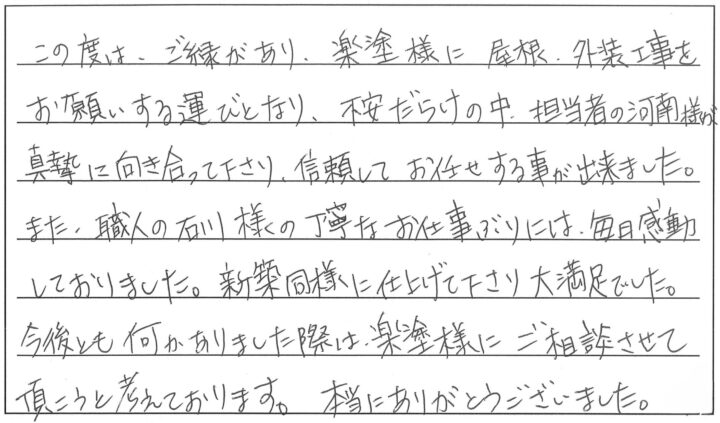 この度は、ご縁があり、楽塗様に 屋根、外装工事を
お願いする運びとなり、不安だらけの中、担当者の河南様が
真摯に向き合って下さり、信頼して お任せする事が出来ました。
また、職人の石川様の丁寧なお仕事ぶりには、毎日感動
しておりました。新築同様に仕上げて下さり大満足でした。
今後とも何かありました際は、楽塗様に ご相談させて
頂こうと考えております。 本当にありがとうございました。